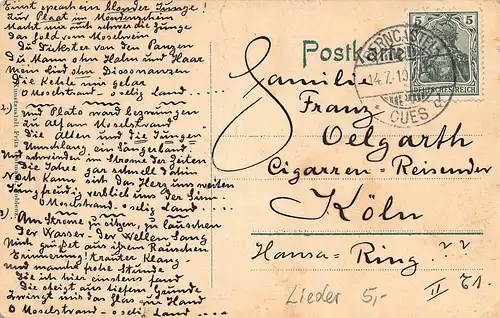 Einst sprach ein blonder Junge!
Zur Platt im Mondenschein
Macht mir auch schwer die Zunge
das Lob vom Moselwein
Die Dickster von den Panzen
Du Mann ohn Hahn und Haar
Mein Lied ohn Dissonanzen
Die Kehle mir gebar
O Moselstrand - o selig Land ....
2.) Und Plato ward bezwungen
zu Alfano Moselstrang
Die Alten und die Jungen
Umschlang ein Sängerband.
Und schwinden im Strome der Zeiten
Die Jahre gar schnell dahin
Noch kann sich das Herz uns weiten
Jungfreudig verblieb uns der Sinn.
O Moselstrand - o selig Land ....
3.) Am Strome zu sitzen, zu lauschen
der Wasser - der Wellen Sang
Mich grüßet aus ihrem Rauschen
Erinnerung! trauter Klang
Und manche frohe Stunde
Die ich hier einstens fand
Die steigt aus tiefem Grunde
Zwingt mir das Glas zur Hand
O Moselstrand - o selig Land ....
Postkarte
BERNCASTEL
14.7.1
CUES d
5 5
DEUTSCHES REICH
Familie
Franz
Oelgarth
Cigarren-Reisender
Köln
Hansa=Ring ??
Lieder 5,-
II 71.